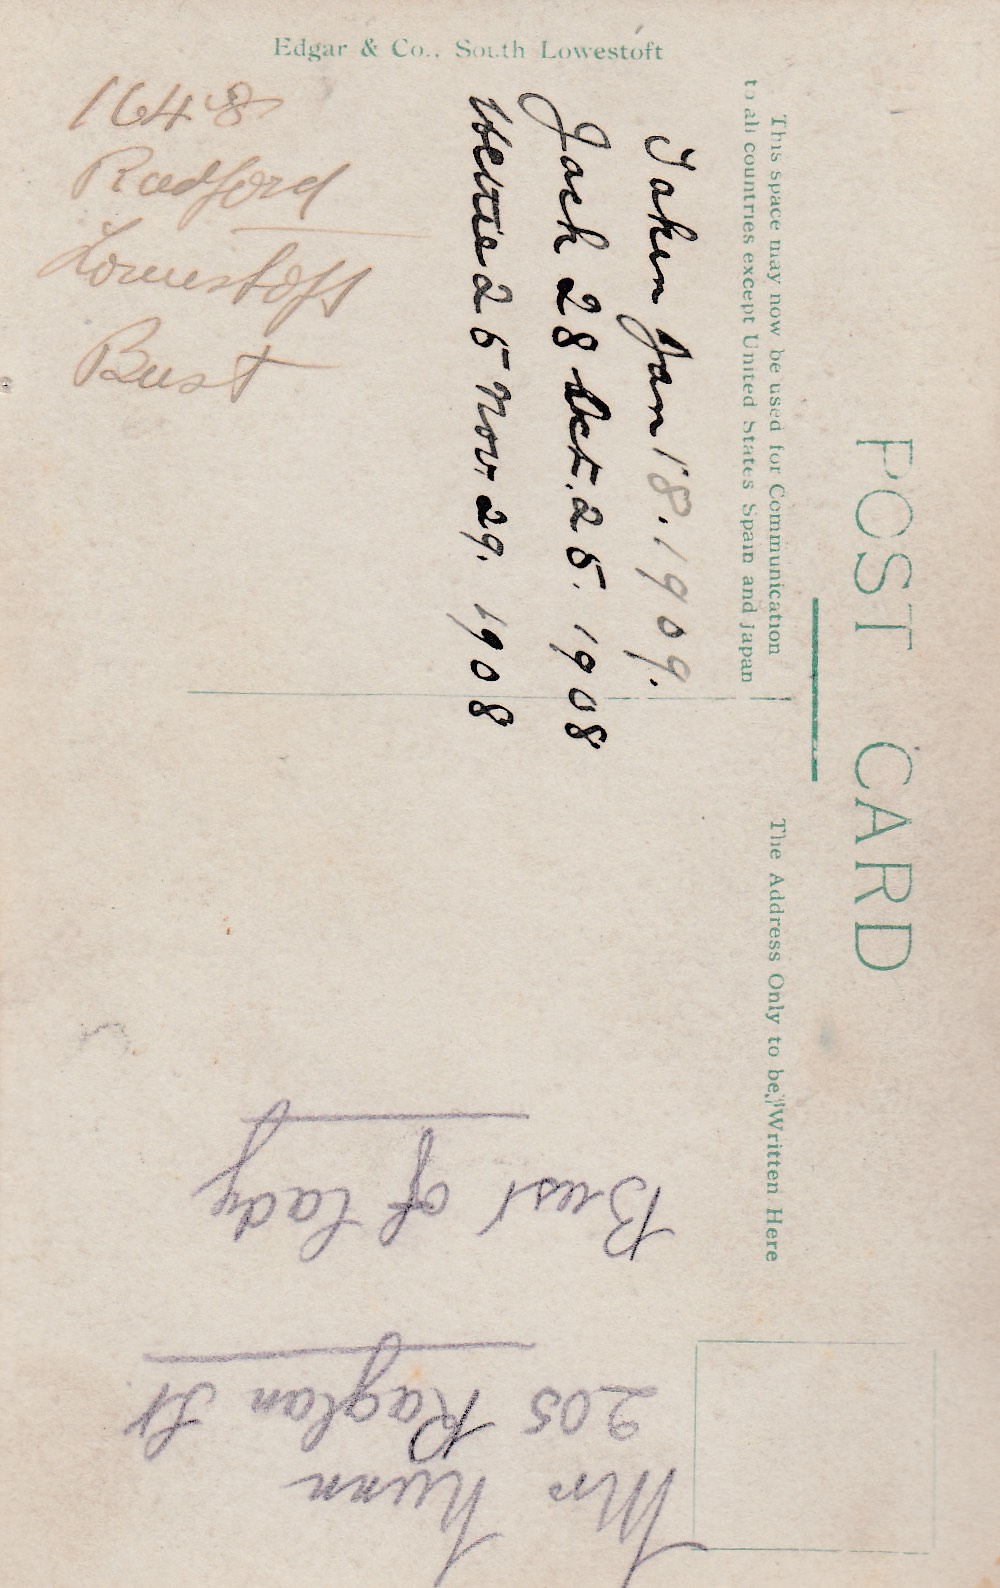 Edgar & Co., South Lowestoft
POST CARD
This space may now be used for Communication
to all countries except United States Spain and Japan
The Address Only to be Written Here
Taken Jan 18. 1909.
Jack 28 Oct. 25. 1908
25 Nov. 29. 1908
1648
Radford
Lowestoft
Bust
Mr Nunn
205 Raglan St
Bust of Lady